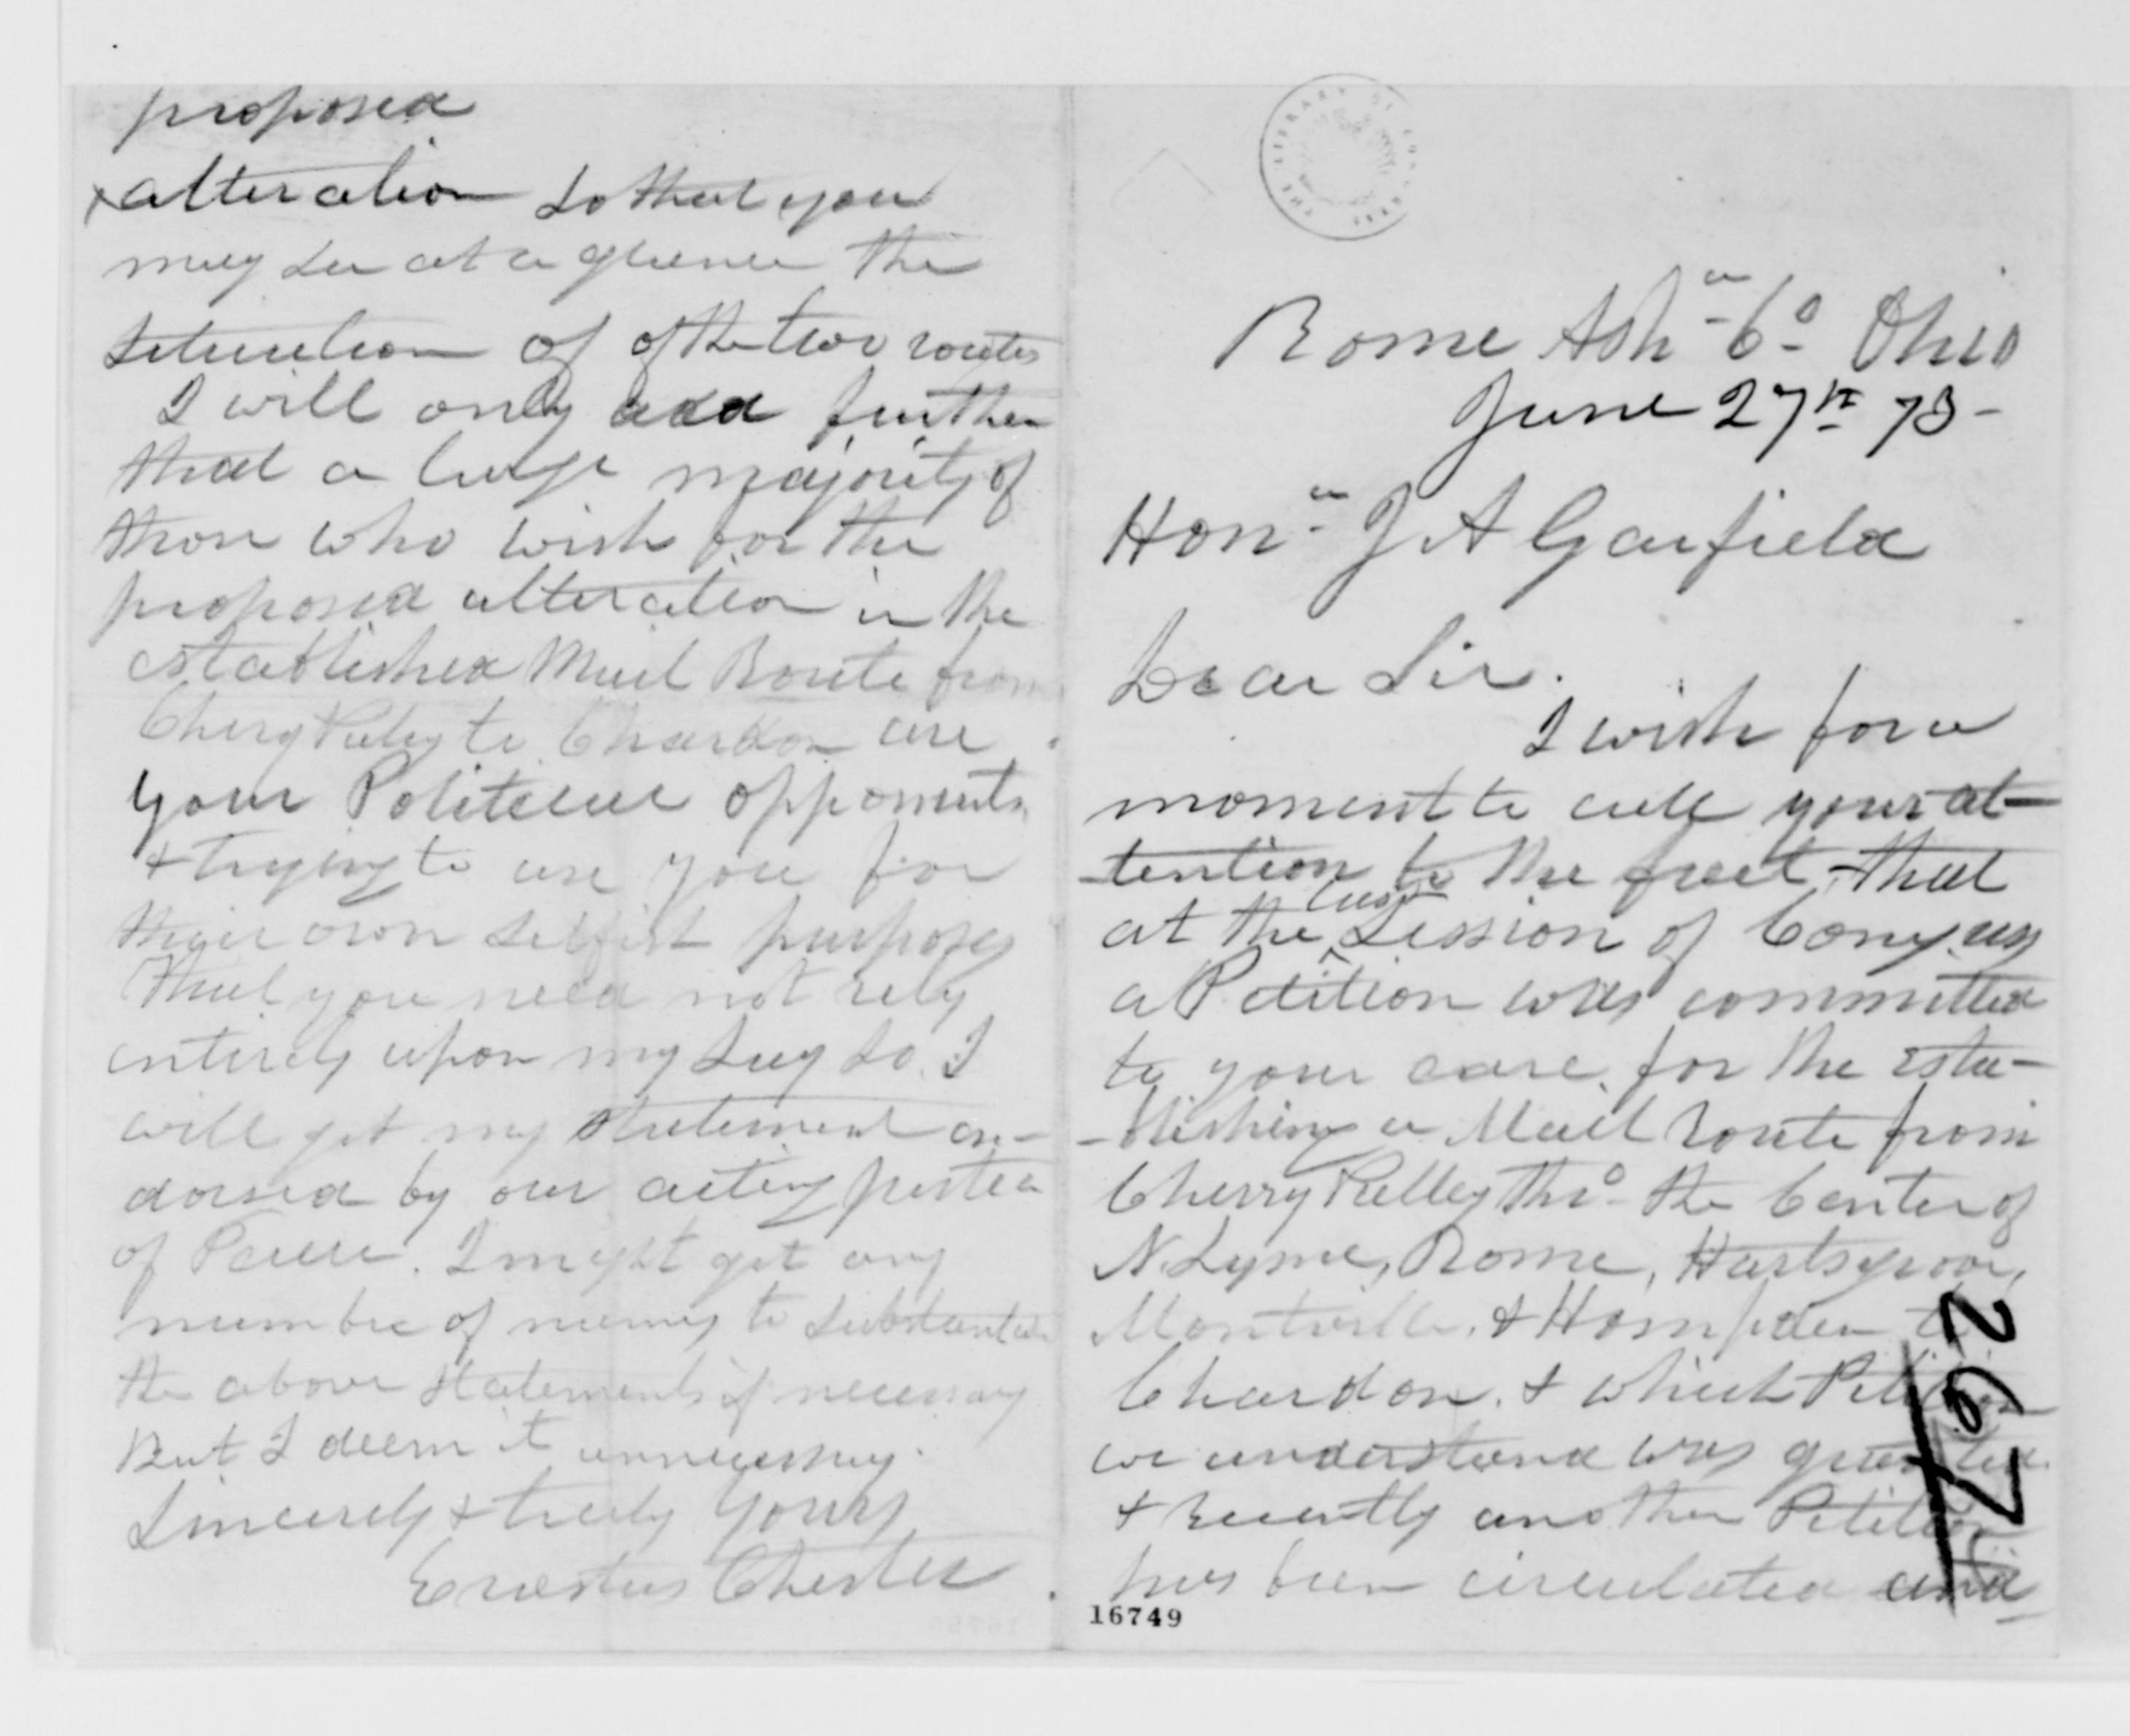 Rome Ash^a Co Ohio
June 27th 73-
Hon^a J A Garfield
Dear Sir.
I wish for a
moment to call your at-
tention to the fact, that
at the last Session of Congress
a Petition was committed
to your care, for the esta-
-blishing a Mail Route from
Cherry Valley thro the Center of
N. Lyme, Rome, Hartsgrove,
Montville, & Hampden to
Chardon. & which Petition
we understand was granted
& recently another Petition
has been circulated and
16749
proposed
alteration so that you
may see at a glance the
situation of of the two routes
I will only add further
that a large majority of
those who wish for the
proposed alteration in the
established Mail Route from
Chery Valey to Chardon are
your Politicial opponents
& trying to use you for
their own selfish purposes
That you need not rely
entirely upon my say so. I
will get my statement en-
dorsed by our acting justice
of Peace. I might get any
number of names to substantiate
the above statements if necessary
But I deem it unnecessary.
Sincerely & truly Yours
Erastus Chester
THE LIBRARY OF CONGRESS